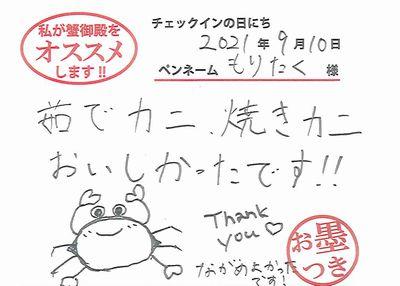 私が蟹御殿を
オススメ
します!!
チェックインの日にち
2021年9月10日
ペンネーム もりたく 様
茹でカニ、焼きカニ
おいしかったです!!
Thank
you♡
ながめよかった
です!
お墨
つき